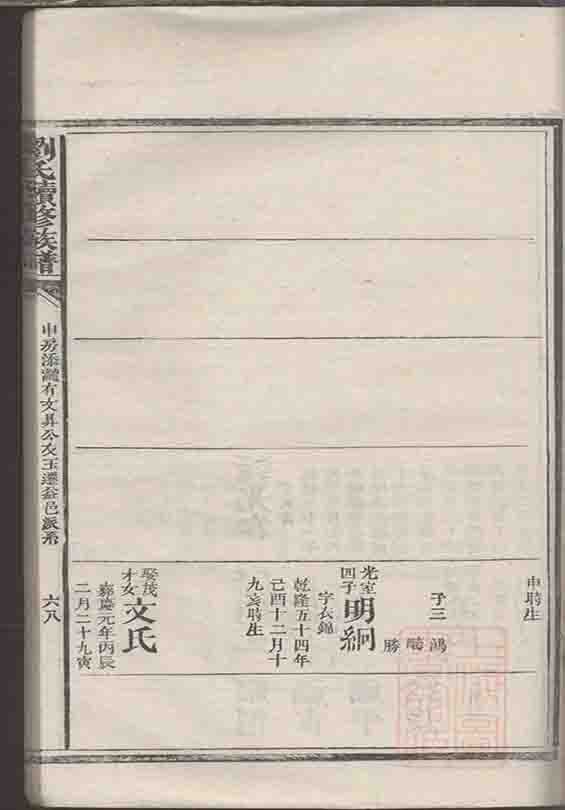 申時生
子三
鴻
鵬
勝
光室
四子
明絅
字衣錦
乾隆五十四年
己酉十二月十
九亥時生
娶茂
才女
文氏
嘉慶元年丙辰
二月二十九寅
劉氏續修族譜
申房添 有文昇公友玉遷益邑派系
六八